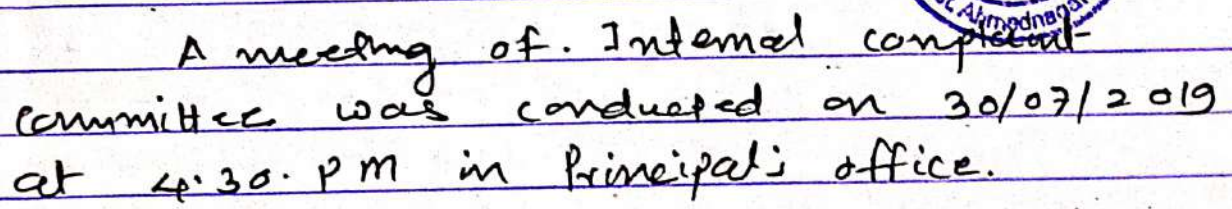 t. Ahmednaga
A meeting of. Internal complaint
committee was conducted on 30/07/2019
at 4.30. PM in Principal's office.